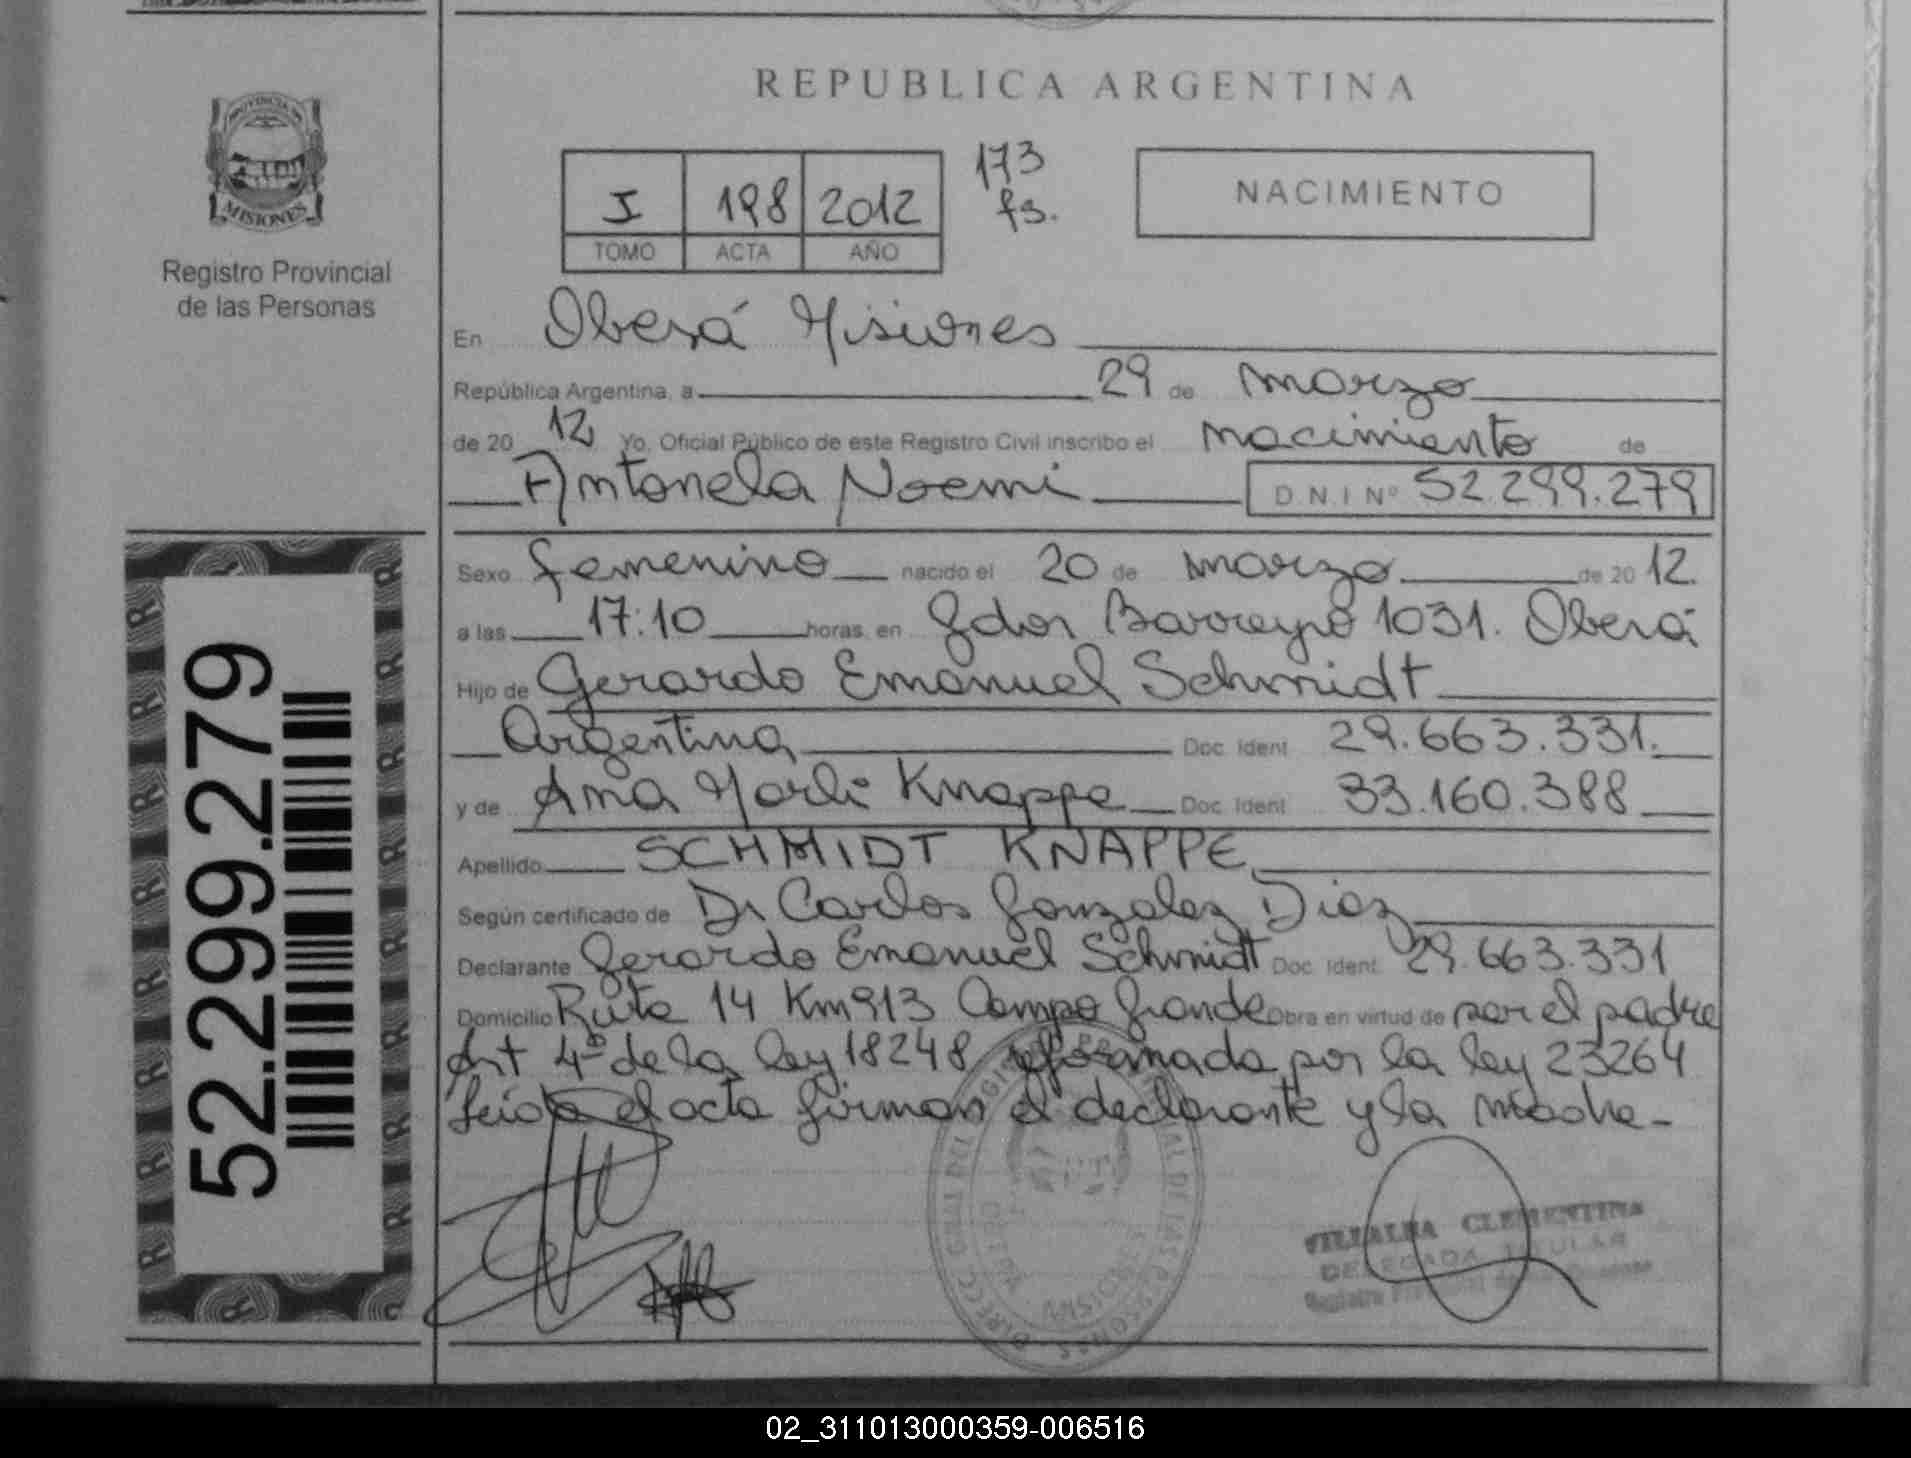 REPUBLICA ARGENTINA
PROVINCIA DE
MISIONES
Registro Provincial
de las Personas
I 198 2012
TOMO ACTA AÑO
173
fs.
NACIMIENTO
En Oberá Misiones
República Argentina, a 29 de marzo
de 20 12 Yo, Oficial Público de este Registro Civil inscribo el nacimiento de
Antonela Noemi D.N.I Nº 52.299.279
Sexo femenino nacido el 20 de marzo de 20 12.
a las 17:10 horas, en Gdor Barreyro 1031. Oberá
Hijo de Gerardo Emanuel Schmidt
Argentina Doc. Ident 29.663.331.
y de Ana Marli Knappe Doc. Ident 33.160.388
Apellido SCHMIDT KNAPPE
Según certificado de Dr Carlos Gonzalez Diaz
Declarante Gerardo Emanuel Schmidt Doc. Ident. 29.663.331
Domicilio Ruta 14 Km 913 Campo Grande Obra en virtud de por el padre
Art 4º de la ley 18248 reformada por la ley 23264
leida el acta firman el declarante y la madre-
52.299.279
VILLALBA CLEMENTINA
DELEGADA TITULAR
02_311013000359-006516